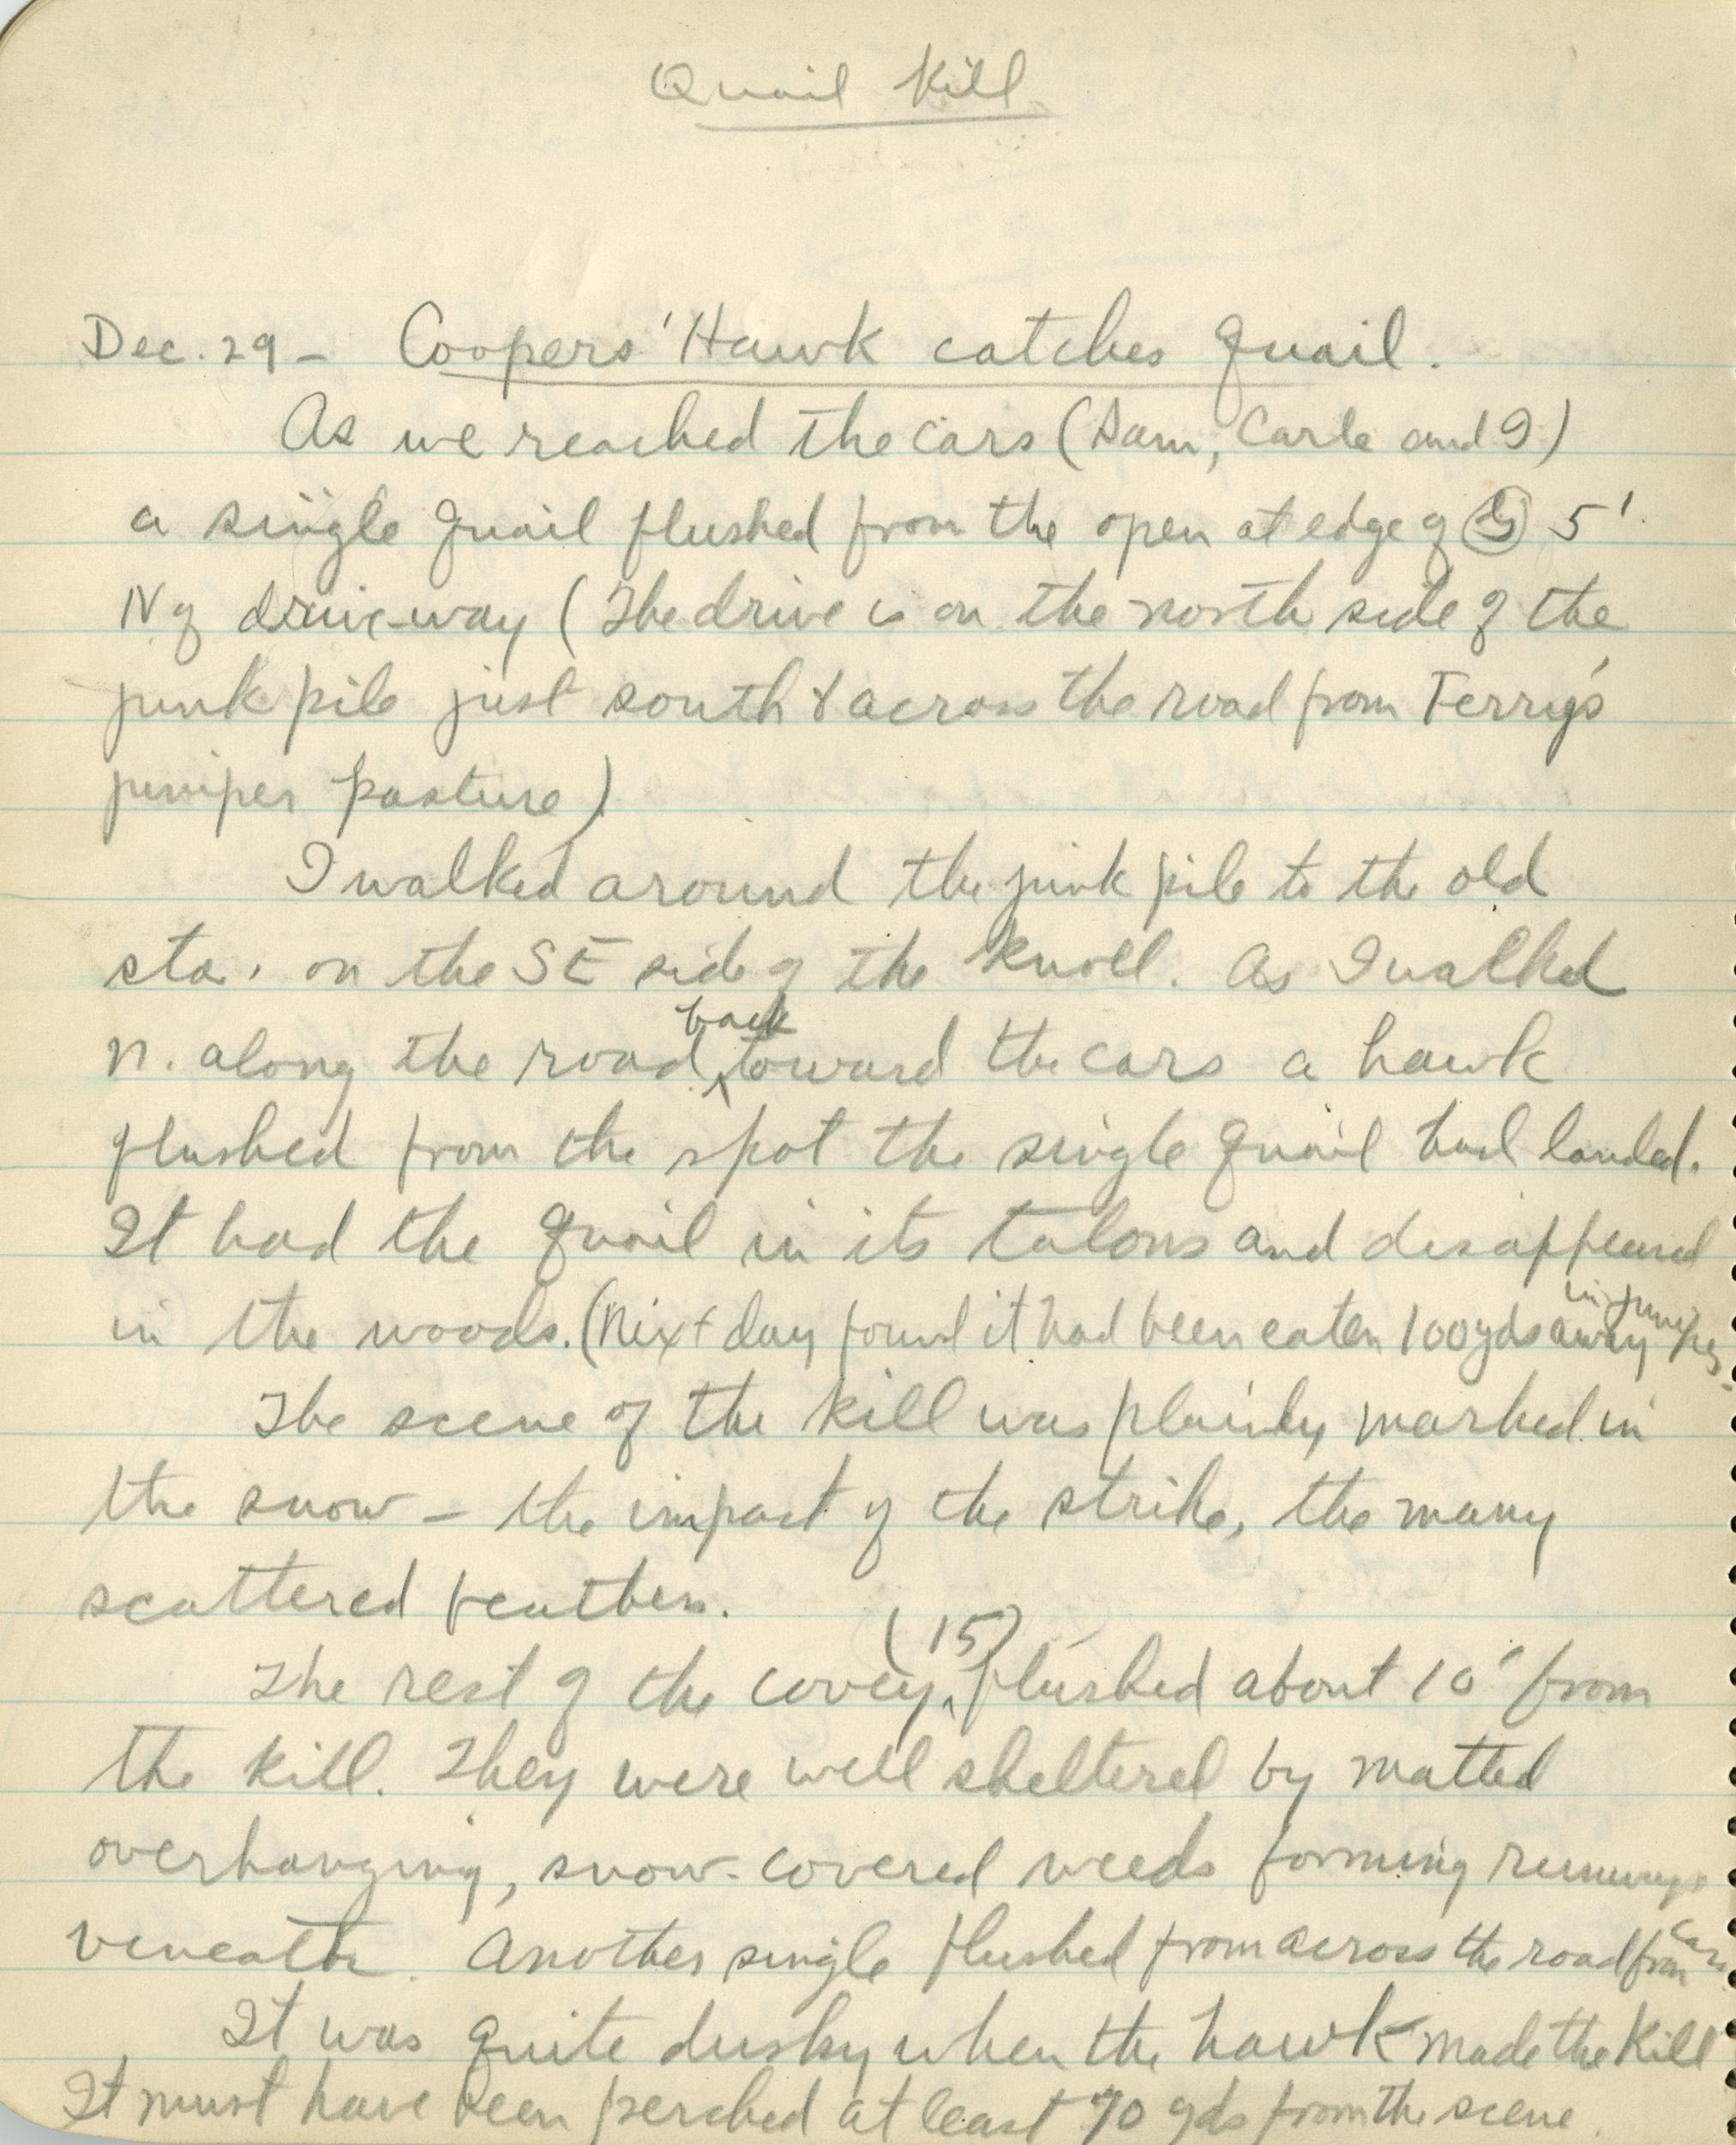 Quail Kill
Dec. 29 - Coopers' Hawk catches quail.
As we reached the cars (Sam, Carle and I)
a single quail flushed from the open at edge of 5'
N of drive-way (The drive is on the north side of the
junk pile just south & across the road from Terry's
juniper pasture)
I walked around the junk pile to the old
sta. on the SE side of the knoll. As I walked
back
n. along the road, toward the cars a hawk
flushed from the spot the single quail had landed.
It had the quail in its talons and disappeared
in junipers
in the woods. (Next day found it had been eaten 100 yds away
The scene of the kill was plainly marked in
the snow - the impact of the strike, the many
scattered feathers.
(15)
The rest of the covey, flushed about 10' from
the kill. They were well sheltered by matted
overhanging, snow-covered weeds forming runways
cars
veneath. Another single flushed from across the road from
It was quite dusky when the hawk made the kill
It must have been perched at least 70 yds from the scene.